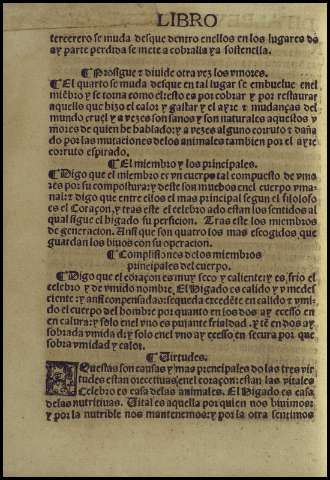 LIBRO
tercerero se muda desque dentro enellos en los lugares dō
ay parte perdida se mete a cobralla ya sostenella.
¶ Prosigue τ divide otra vez los vmores.
¶ El quarto se muda desque en tal lugar se embuelue enel
miēbro y se torna como el iesto es por cobrar y por restaurar
aquello que hizo el calor y gastar y el ayre τ mudanças del
mundo cruel y a vezes son sanos y son naturales aquestos v
mores de quien he hablado: y a vezes alguno corruto τ daña
do por las mutaciones de los animales tambien por el ayre
corruto espirado.
¶ El miembro y los principales.
¶ Digo que el miembro es vn cuerpo tal compuesto de vmo
res por su compostura: y deste son muchos enel cuerpo vma
nal: τ digo que entre ellos el mas principal segun el filosofo
es el Coraçon, y tras este el celebro ado estan los sentidos al
qual sigue el higado su perficion. Tras este los miembros
de generacion. Ansi que son quatro los mas escogidos que
guardan los biuos con su operacion.
¶ Complisiones de los miembros
principales del cuerpo.
¶ Digo que el coraçon es muy seco y caliente: y es, frio el
celebro y de vmido nombre. El Higado es calido y vmedes
ciente: y ansi conpensado: sequeda excedēte en calido τ vmi
do el cuerpo del hombre por quanto en los dos ay ecesso en
en calura: y solo enel vno es pujante frialdad. τ tē dos ay
sobrada vmida d: y solo enel vno ay ecesso en secura por que
sobra vmidad y calor.
¶ Virtudes.
AQuestas son causas y mas prencipales do las tres vir
tudes estan orectiuas: enel coraçon: estan las vitales
Celebro es casa delas animales. El Higado es casa
delas nutritiuas. Uital es aquella por quien nos biuimos
y por la nutrible nos mantenemos: y por la otra sentimos